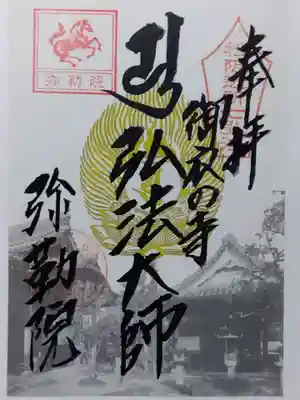 奉拝
御衣の寺
弘法大師
弥勒院
弥勒院